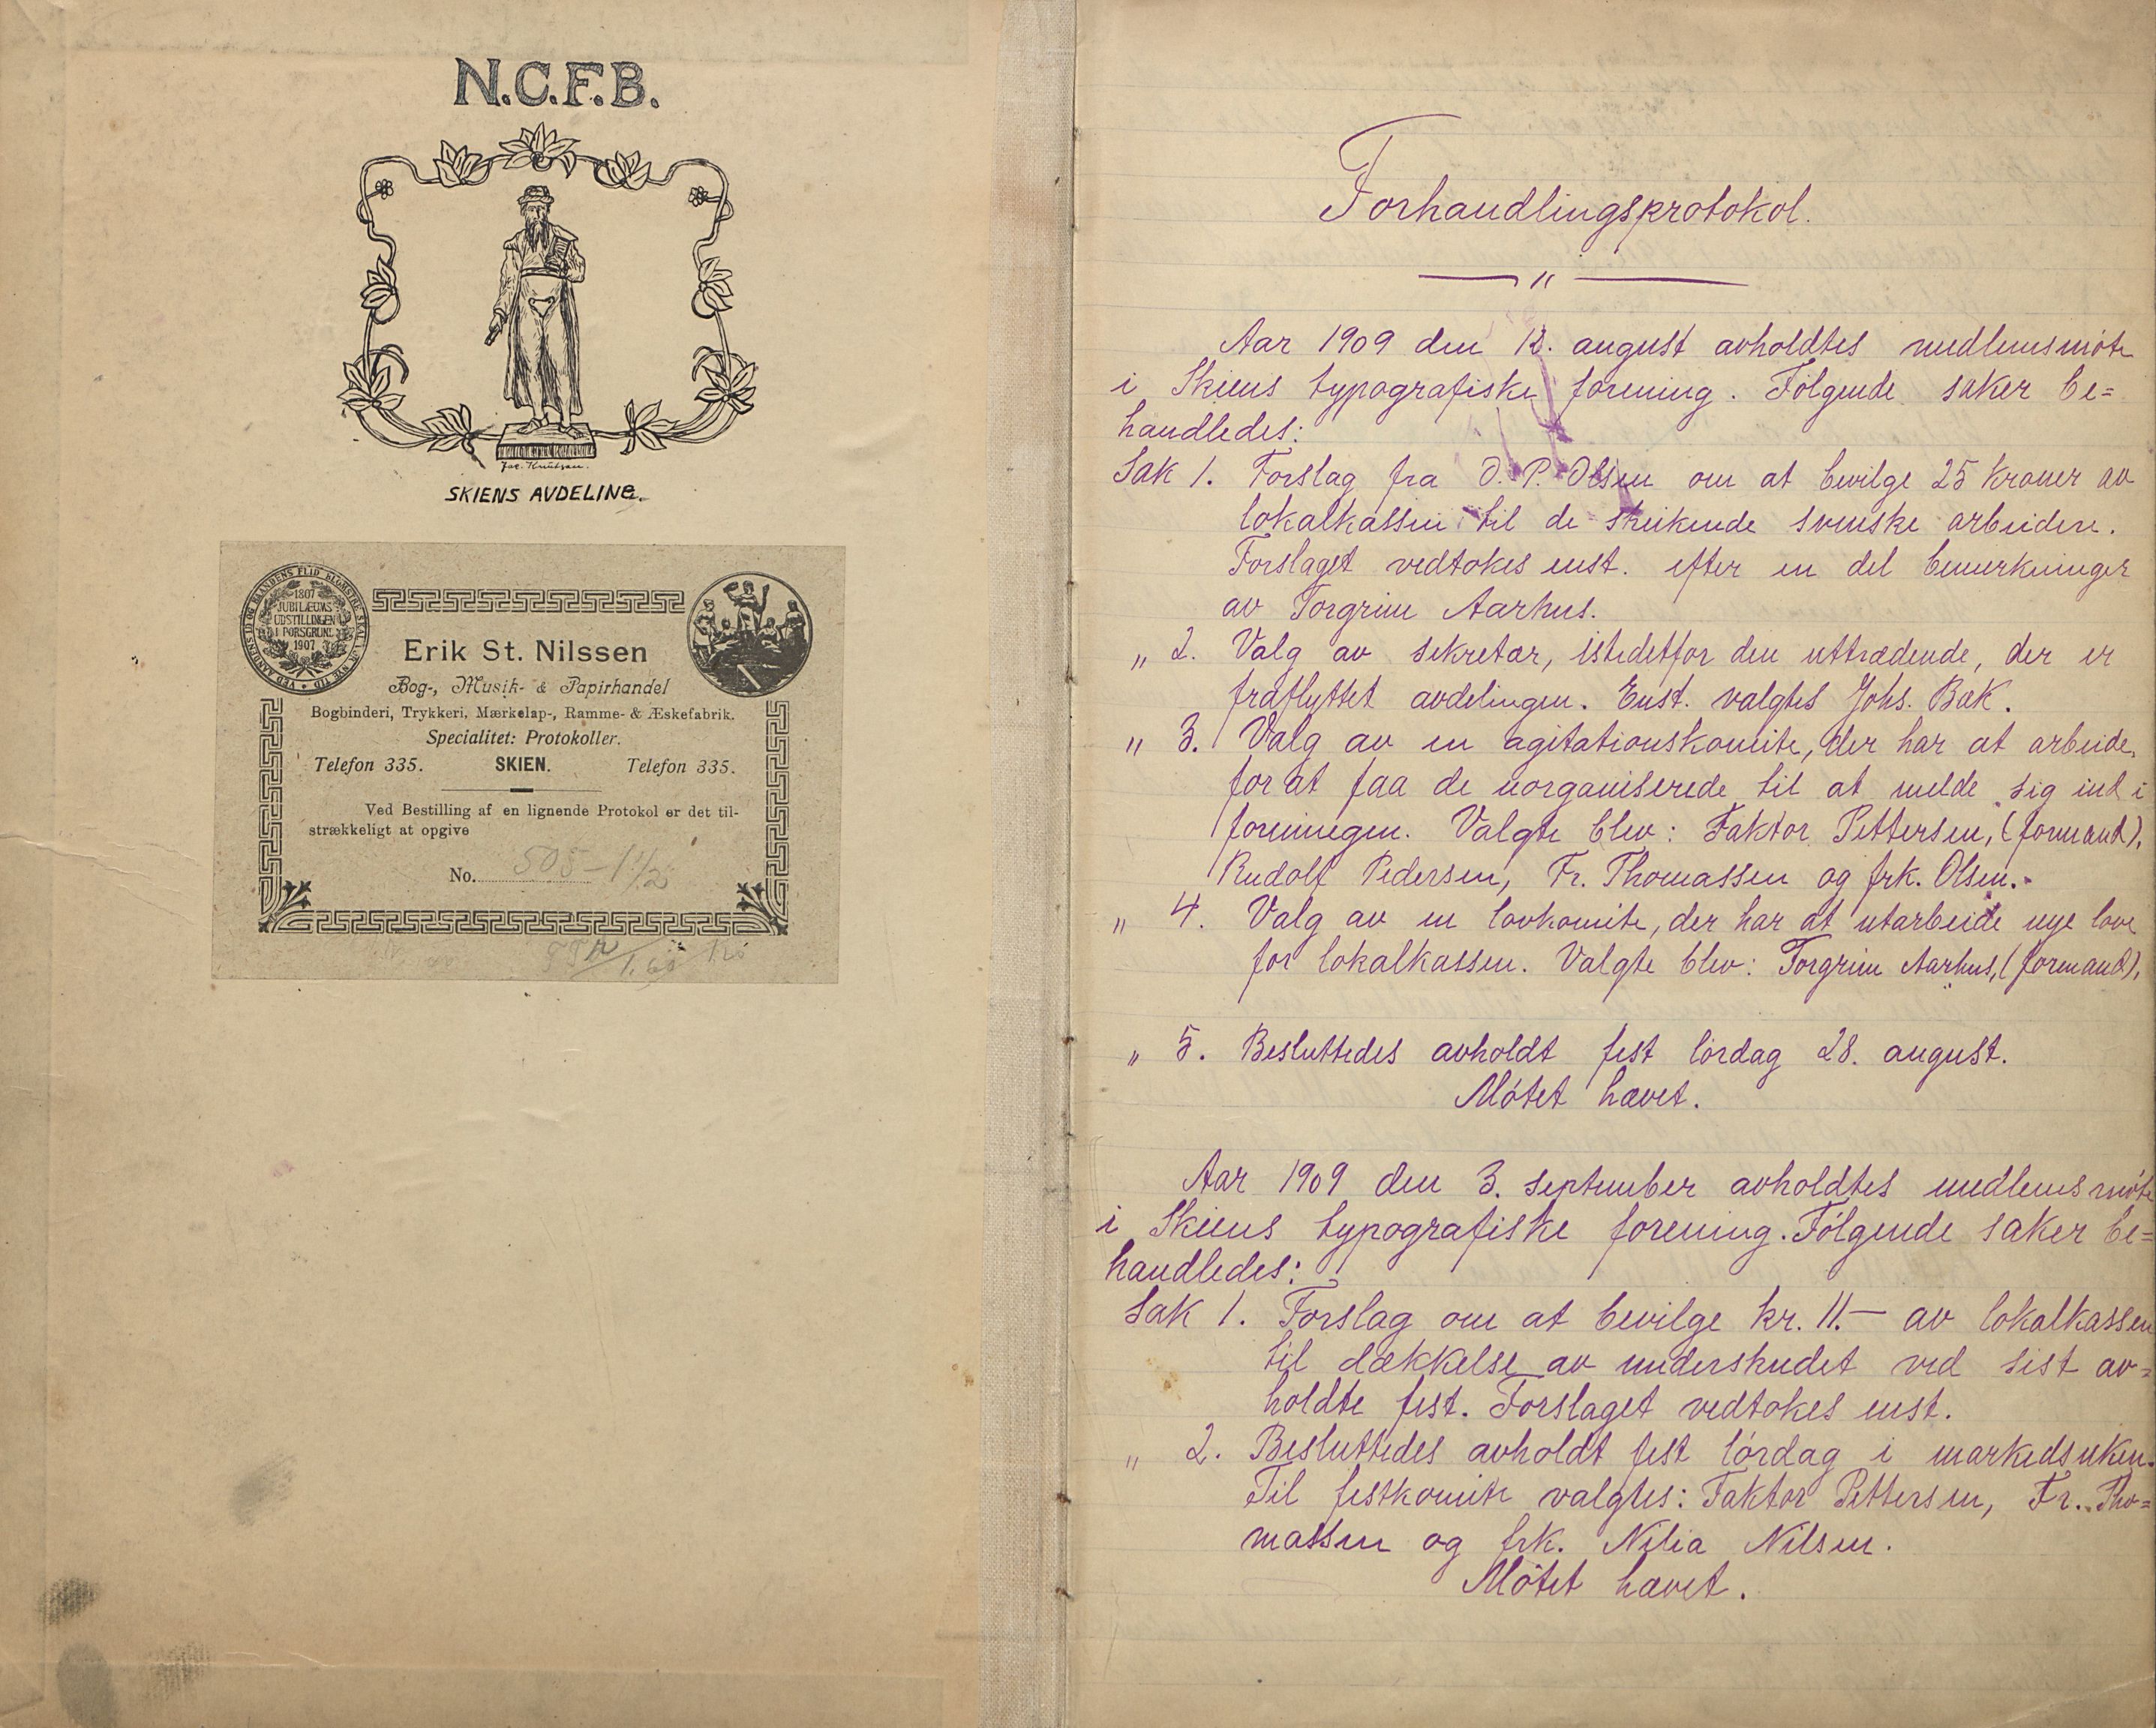 N.C.F.B.
Joe. Knutsen.
SKIENS AVDELING.
VED AANDENS ID OG HAANDENS FLID BLOMSTRE SKAL VOR NYE TID
1807
JUBILÆUMS
UDSTILLINGEN
I PORSGRUND
1907
Erik St. Nilssen
Bog-, Musik- & Papirhandel
Bogbinderi, Trykkeri, Mærkelap-, Ramme- & Æskefabrik.
Specialitet: Protokoller.
Telefon 335. SKIEN. Telefon 335.
Ved Bestilling af en lignende Protokol er det til-
strækkeligt at opgive
No. 505 - 1 1/2
1.60
Forhandlingsprotokol.
Aar 1909 den 12. august avholdtes medlemsmøte
i Skiens typografiske forening. Følgende saker be=
handledes:
Sak 1. Forslag fra O. P. Olsen om at bevilge 25 kroner av
lokalkassen til de streikende svenske arbeidere.
Forslaget vedtokes enst. efter en del bemerkninger
av Torgrim Aarhus.
" 2. Valg av sekretær, istedetfor den uttrædende, der er
fraflyttet avdelingen. Enst. valgtes Johs. Bak.
" 3. Valg av en agitationskomite, der har at arbeide
for at faa de uorganiserede til at melde sig ind i
foreningen. Valgte blev: Faktor Pettersen, (formand),
Rudolf Pedersen, Fr. Thomassen og frk. Olsen.
" 4. Valg av en lovkomite, der har at utarbeide nye love
for lokalkassen. Valgte blev: Torgrim Aarhus, (formand),
" 5. Besluttedes avholdt fest lørdag 28. august.
Møtet hævet.
Aar 1909 den 3. september avholdtes medlemsmøte
i Skiens typografiske forening. Følgende saker be=
handledes:
Sak 1. Forslag om at bevilge kr. 11.— av lokalkassen
til dækkelse av underskudet ved sist av=
holdte fest. Forslaget vedtokes enst.
" 2. Besluttedes avholdt fest lørdag i markedsuken.
Til festkomite valgtes: Faktor Pettersen, Fr. Tho=
massen og frk. Nilia Nilsen.
Møtet hævet.